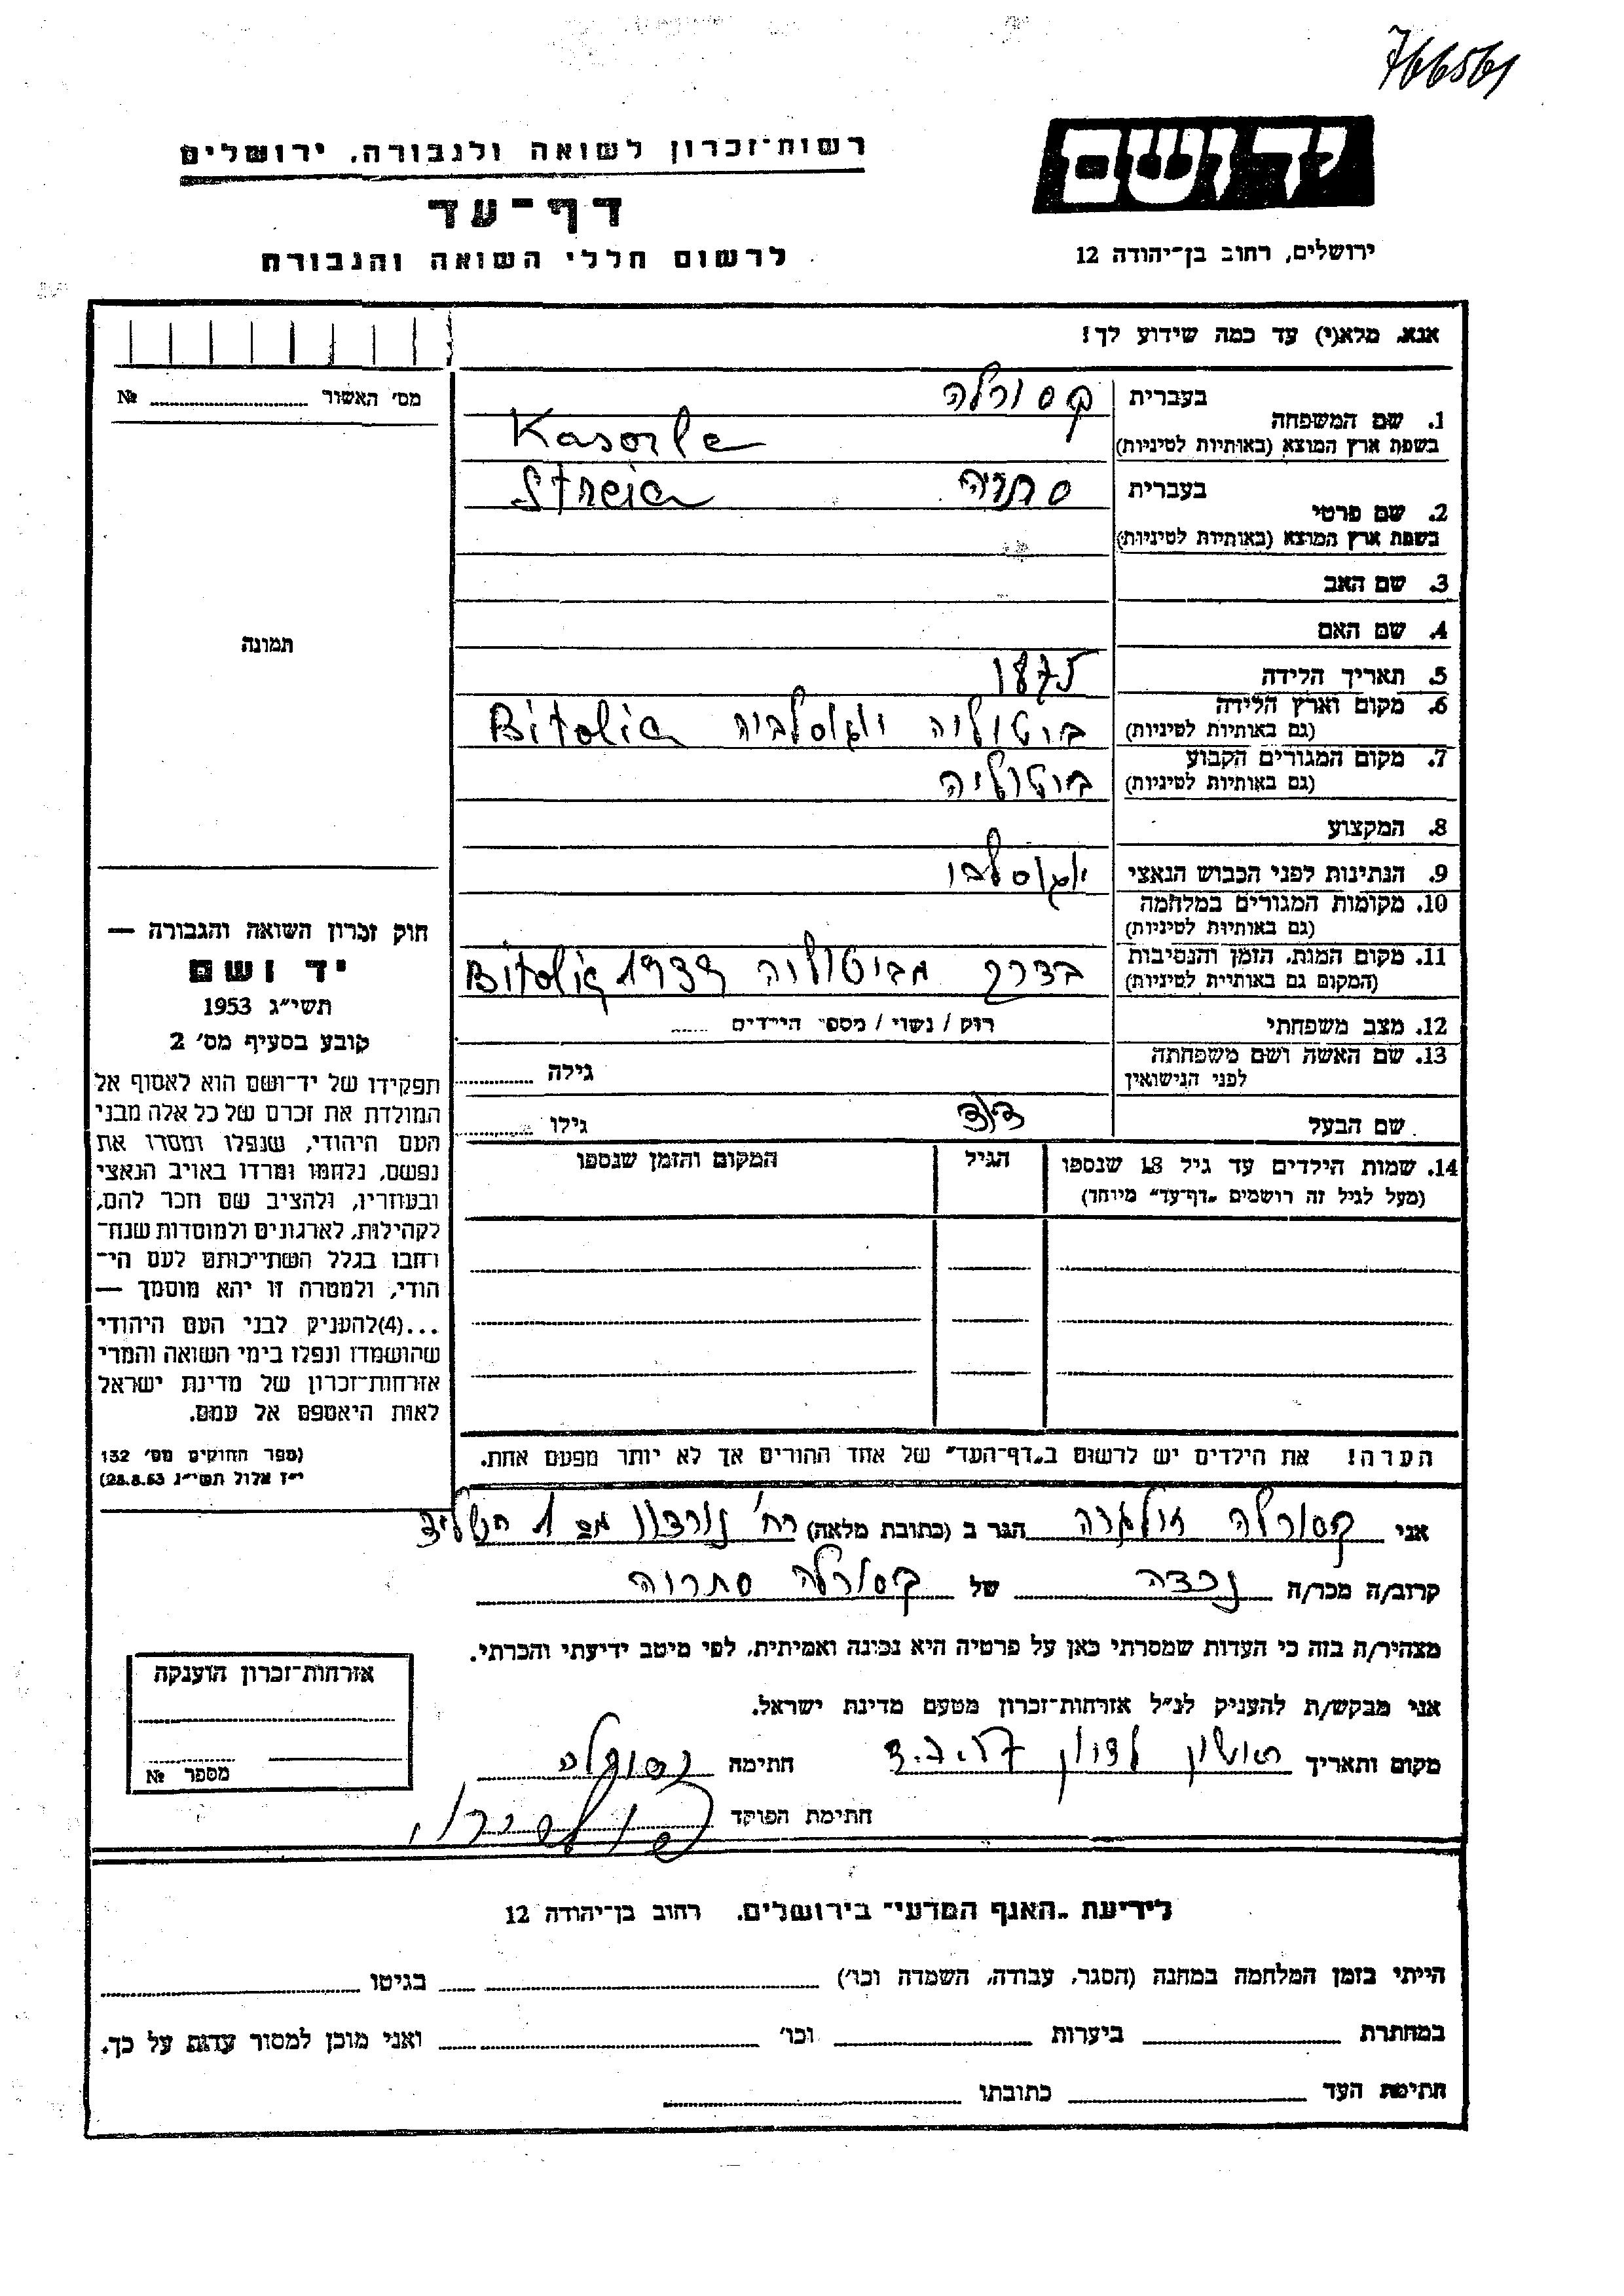 766561
יד ושם
רשות־זכרון לשואה ולגבורה, ירושלים
דף־עד
לרשום חללי השואה והגבורה
ירושלים, רחוב בן־יהודה 12
אנא, מלא(י) עד כמה שידוע לך!
מס' האשור № 
תמונה
חוק זכרון השואה והגבורה —
יד ושם
תשי״ג 1953
קובע בסעיף מס' 2
תפקידו של יד־ושם הוא לאסוף אל
המולדת את זכרם של כל אלה מבני
העם היהודי, שנפלו ומסרו את
נפשם, נלחמו ומרדו באויב הנאצי
ובעוזריו, ולהציב שם וזכר להם,
לקהילות, לארגונים ולמוסדות שנח־
רחבו בגלל השתייכותם לעם הי־
הודי, ולמטרה זו יהא מוסמך —
...(4)להעניק לבני העם היהודי
שהושמדו ונפלו בימי השואה והמרי
אזרחות־זכרון של מדינת ישראל
לאות היאספם אל עמם.
(ספר החוקים מס' 132
י״ז אלול תשי״ג 28.8.53)
1. שם המשפחה בעברית קסורלה
בשפת ארץ המוצא (באותיות לטיניות) Kasorla
2. שם פרטי בעברית סתריה Streia
בשפת ארץ המוצא (באותיות לטיניות)
3. שם האב
4. שם האם
5. תאריך הלידה 1875
6. מקום וארץ הלידה (גם באותיות לטיניות) ביטוליה יוגוסלביה Bitolia
7. מקום המגורים הקבוע (גם באותיות לטיניות) ביטוליה
8. המקצוע
9. הנתינות לפני הכבוש הנאצי יוגוסלבי
10. מקומות המגורים במלחמה (גם באותיות לטיניות)
11. מקום המות, הזמן והנסיבות (המקום גם באותיות לטיניות) בדרך מביטוליה 1939 Bitolia
12. מצב משפחתי רוק / נשוי / מספר הילדים
13. שם האשה ושם משפחתה לפני הנישואין גילה
שם הבעל דוד גילו
14. שמות הילדים עד גיל 18 שנספו הגיל המקום והזמן שנספו
(מעל לגיל זה רושמים „דף־עד״ מיוחד)
הערה! את הילדים יש לרשום ב„דף־העד״ של אחד ההורים אך לא יותר מפעם אחת.
אני קסורלה הגר ב (כתובת מלאה) רח' נורדוי 1
קרוב/ה מכר/ה נכדה של קסורלה סתרוה
מצהיר/ה בזה כי העדות שמסרתי כאן על פרטיה היא נכונה ואמיתית, לפי מיטב ידיעתי והכרתי.
אני מבקש/ת להעניק לנ״ל אזרחות־זכרון מטעם מדינת ישראל.
מקום ותאריך ראשון לציון 3.7.57 חתימה קסורלה
חתימת הפוקד
אזרחות־זכרון הוענקה
מספר №
לידיעת „האגף המדעי״ בירושלים, רחוב בן־יהודה 12
הייתי בזמן המלחמה במחנה (הסגר, עבודה, השמדה וכו') בגיטו
במחתרת ביערות וכו' ואני מוכן למסור עדות על כך.
חתימת העד כתובתו